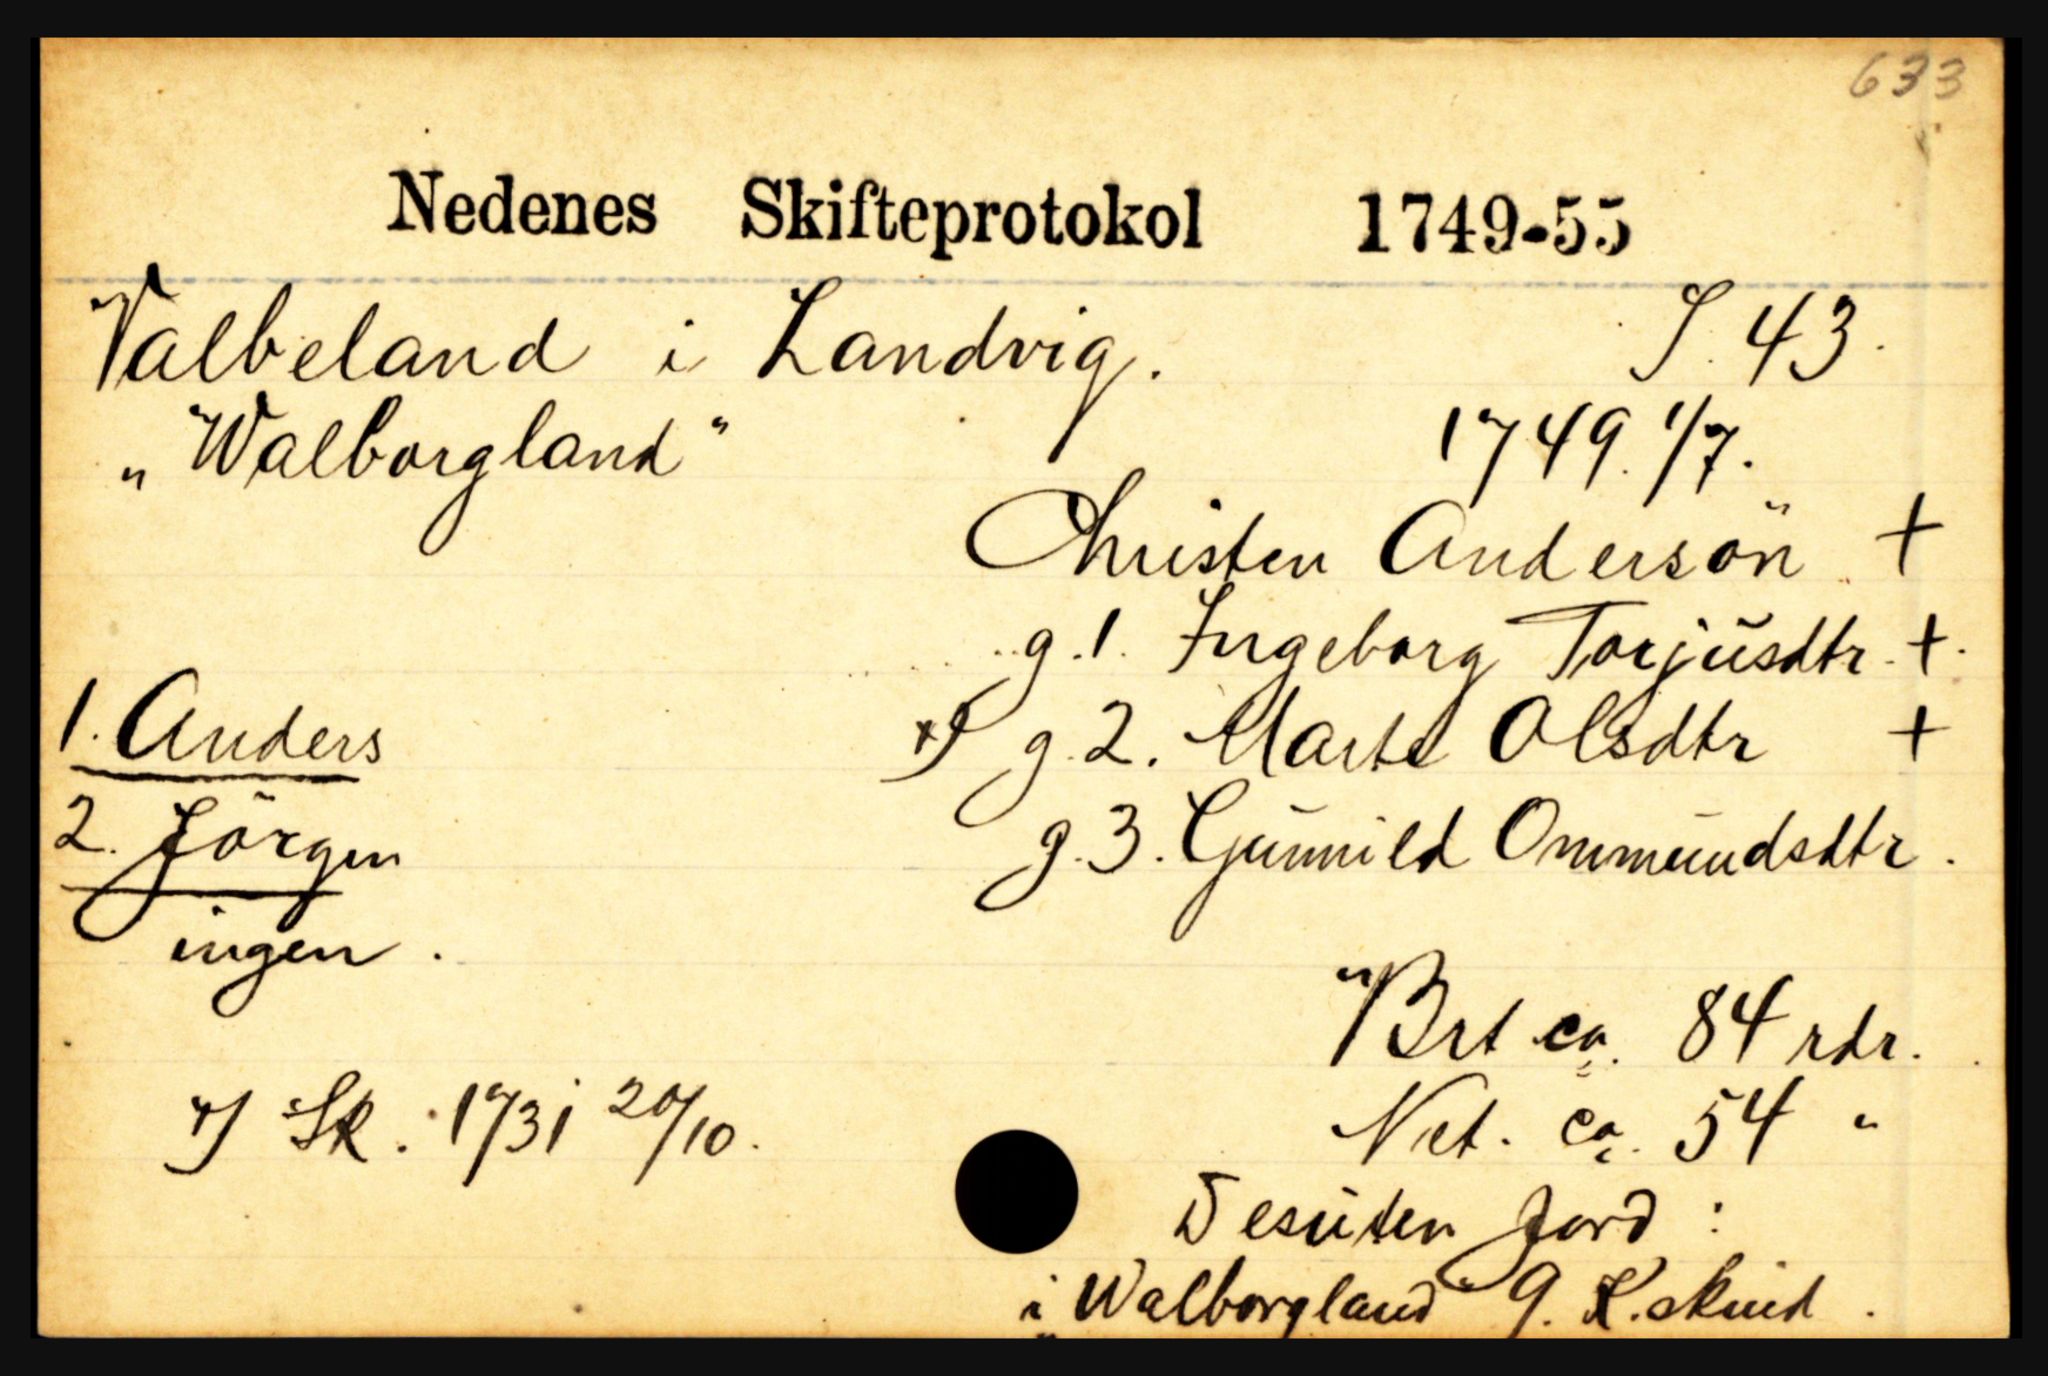 633
Nedenes Skifteprotokol 1749-55
Valbeland i Landvig. S. 43.
„Walborgland" 1749. 1/7.
Christen Andersön +
g.1. Ingeborg Torjusdtr. +.
1. Anders x) g.2. Marte Olsdtr +
2. Jörgen g.3. Gunnild Ommundsdtr.
ingen.
Brt ca. 84 rdr.
x) Sk. 1731 20/10. Net. ca. 54 "
Desuten Jord:
i Walborgland 9. K.skind.